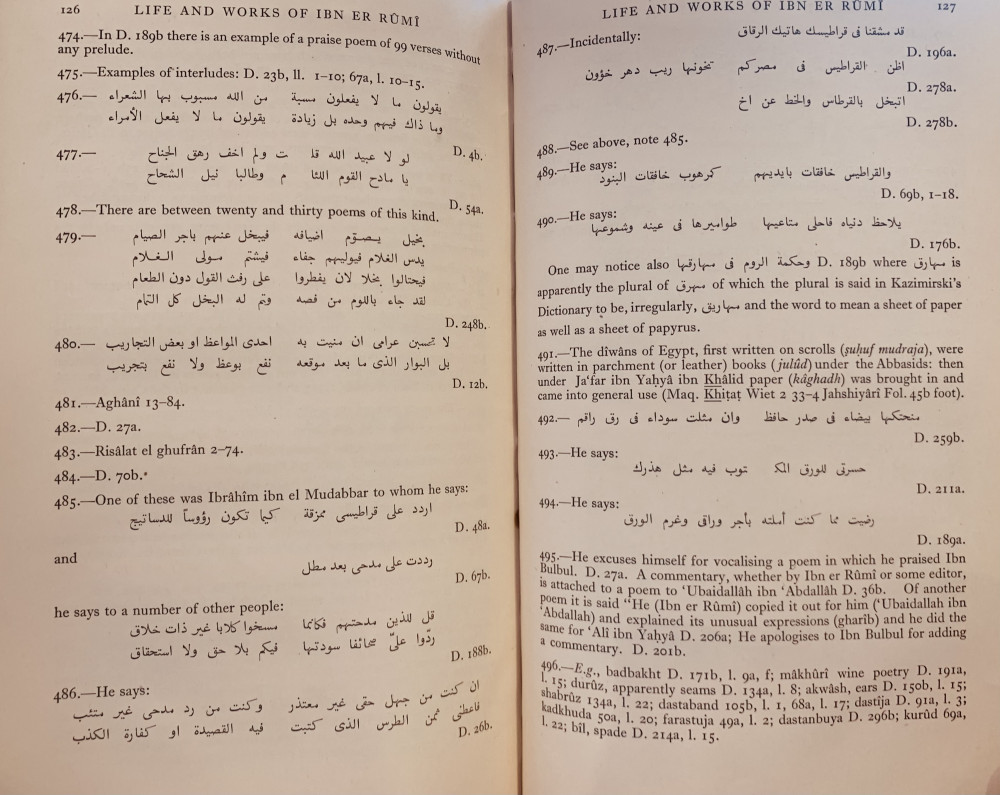 126 LIFE AND WORKS OF IBN ER RŪMĪ
474.—In D. 189b there is an example of a praise poem of 99 verses without
any prelude.
475.—Examples of interludes: D. 23b, ll. 1-10; 67a, l. 10-15.
476.— يقولون ما لا يفعلون مسبة من الله مسبوب بها الشعراء
وما ذاك فيهم وحده بل زيادة يقولون ما لا يفعل الأمراء
D. 4b.
477.— لو لا عبيد الله قلـ ـت ولم اخف رهق الجناح
يا مادح القوم اللئا م وطالبا نيل الشحاح
D. 54a.
478.—There are between twenty and thirty poems of this kind.
479.— بخيل يصوّم اضيافه فيبخل عنهم باجر الصيام
يدس الغلام فيوليهم جفاء فيشتم مولى الغلام
فيحتالوا بخلا لان يفطروا على رفث القول دون الطعام
لقد جاء باللوم من فصه وتم له البخل كل التمام
D. 248b.
480.— لا تحسبن عرامى ان منيت به احدى المواعظ او بعض التجاريب
بل البوار الذى ما بعد موقعه نفع بوعظ ولا نفع بتجريب
D. 12b.
481.—Aghânî 13-84.
482.—D. 27a.
483.—Risâlat el ghufrân 2-74.
484.—D. 70b.
485.—One of these was Ibrâhîm ibn el Mudabbar to whom he says:
اردد على قراطيسى ممزقة كيما تكون رؤوساً للدساتيج
D. 48a.
and
رددت على مدحى بعد مطل
D. 67b.
he says to a number of other people:
قل للذين مدحتهم فكانما مسخوا كلابا غير ذات خلاق
ردّوا علىّ صحائفا سودتها فيكم بلا حق ولا استحقاق
D. 188b.
486.—He says:
ان كنت من جهل حقى غير معتذر وكنت من رد مدحى غير متئب
فاعطنى ثمن الطرس الذى كتبت فيه القصيدة او كفارة الكذب
D. 26b.
LIFE AND WORKS OF IBN ER RŪMĪ 127
487.—Incidentally: قد مشقنا فى قراطيسك هاتيك الرقاق
D. 196a.
اظن القراطيس فى مصركم تخونها ريب دهر خؤون
D. 278a.
اتبخل بالقرطاس والخط عن اخ
D. 278b.
488.—See above, note 485.
489.—He says: والقراطيس خافقات بايديهم كرهوب خافقات البنود
D. 69b, 1-18.
490.—He says: يلاحظ دنياه فاحلى متاعيها طواميرها فى عينه وشموعها
D. 176b.
One may notice also وحكمة الروم فى مهارقها D. 189b where مهارق is
apparently the plural of مهرق of which the plural is said in Kazimirski's
Dictionary to be, irregularly, مهاريق and the word to mean a sheet of paper
as well as a sheet of papyrus.
491.—The dîwâns of Egypt, first written on scrolls (ṣuḥuf mudraja), were
written in parchment (or leather) books (julûd) under the Abbasids: then
under Ja‘far ibn Yaḥyâ ibn Khâlid paper (kâghadh) was brought in and
came into general use (Maq. Khiṭaṭ Wiet 2 33-4 Jahshiyârî Fol. 45b foot).
492.— منحتكها بيضاء فى صدر حافظ وان مثلت سوداء فى رق راقم
D. 259b.
493.—He says:
حسرتى للورق المكـ توب فيه مثل هذرك
D. 211a.
494.—He says:
رضيت مما كنت أملته بأجر وراقى وغرم الورق
D. 189a.
495.—He excuses himself for vocalising a poem in which he praised Ibn
Bulbul. D. 27a. A commentary, whether by Ibn er Rûmî or some editor,
is attached to a poem to ‘Ubaidallâh ibn ‘Abdallâh D. 36b. Of another
poem it is said "He (Ibn er Rûmî) copied it out for him (‘Ubaidallah ibn
‘Abdallah) and explained its unusual expressions (gharîb) and he did the
same for ‘Alî ibn Yaḥyâ D. 206a; He apologises to Ibn Bulbul for adding
a commentary. D. 201b.
496.—E.g., badbakht D. 171b, l. 9a, f; mâkhûrî wine poetry D. 191a,
l. 15; durûz, apparently seams D. 134a, l. 8; akwâsh, ears D. 150b, l. 15;
shabrûz 134a, l. 22; dastaband 105b, l. 1, 68a, l. 17; dastîja D. 91a, l. 3;
kadkhuda 50a, l. 20; farastuja 49a, l. 2; dastanbuya D. 296b; kurûd 69a,
l. 22; bîl, spade D. 214a, l. 15.